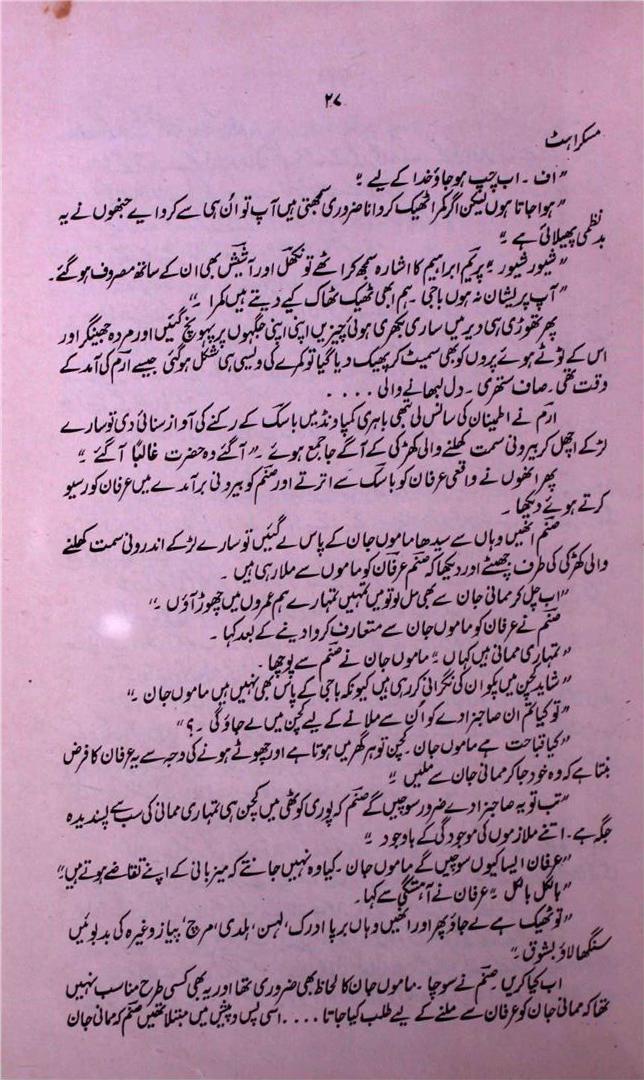 ۲۷
مسکراہٹ
”اف ۔ اب چپ ہو جاؤ خدا کے لیے ۔“
”ہوا جاتا ہوں لیکن اگر کمرا ٹھیک کروانا ضروری سمجھتی ہیں آپ تو اُن ہی سے کروایے جنھوں نے یہ
بد نظمی پھیلائی ہے ۔“
”شیور شیور ۔“ پریم ابراہیم کا اشارہ سمجھ کر اٹھے تو نکھل اور آشیش بھی ان کے ساتھ مصروف ہو گئے۔
”آپ پریشان نہ ہوں باجی ۔ ہم ابھی ٹھیک ٹھاک کیے دیتے ہیں کمرا ۔“
پھر تھوڑی ہی دیر میں ساری بکھری ہوئی چیزیں اپنی اپنی جگہوں پر پہونچ گئیں اور مردہ جھینگر اور
اس کے ٹوٹے ہوئے پروں کو بھی سمیٹ کر پھیک دیا گیا تو کمرے کی ویسی ہی شکل ہو گئی جیسے ارم کی آمد کے
وقت تھی ۔ صاف ستھری ۔ دل لبھانے والی ....
ارم نے اطمینان کی سانس لی تھی باہری کمپاونڈ میں باسک کے رکنے کی آواز سنائی دی تو سارے
لڑکے اچھل کر بیرونی سمت کھلنے والی کھڑکی کے آگے جا جمع ہوئے ۔ ”آ گئے وہ حضرت غالباً آ گئے ۔“
پھر انھوں نے واقعی عرفان کو باسک سے اترتے اور صنم کو بیرونی برآمدے میں عرفان کو رسیو
کرتے ہوئے دیکھا ۔
صنم انھیں وہاں سے سیدھا ماموں جان کے پاس لے گئیں تو سارے لڑکے اندرونی سمت کھلنے
والی کھڑکی کی طرف جھپٹے اور دیکھا کہ صنم عرفان کو ماموں سے ملا رہی ہیں ۔
”اب چل کر ممانی جان سے بھی مل لو تو میں تمہیں تمہارے ہم عمروں میں چھوڑ آؤں ۔“
صنم نے عرفان کو ماموں جان سے متعارف کروا دینے کے بعد کہا ۔
”تمہاری ممانی ہیں کہاں ۔“ ماموں جان نے صنم سے پوچھا ۔
”شاید کچن میں پکوان کی نگرانی کر رہی ہیں کیونکہ باجی کے پاس بھی نہیں ہیں ماموں جان ۔“
”تو کیا تم ان صاحبزادے کو اُن سے ملانے کے لیے کچن میں لے جاؤ گی ۔ ؟“
”کیا قباحت ہے ماموں جان ۔ کچن تو ہر گھر میں ہوتا ہے اور چھوٹے ہونے کی وجہ سے یہ عرفان کا فرض
بنتا ہے کہ وہ خود جا کر ممانی جان سے ملیں ۔“
”تب تو یہ صاحبزادے ضرور سوچیں گے صنم کہ پوری کوٹھی میں کچن ہی تمہاری ممانی کی سب سے پسندیدہ
جگہ ہے ۔ اتنے ملازموں کی موجودگی کے باوجود ۔“
”عرفان ایسا کیوں سوچیں گے ماموں جان ۔ کیا وہ نہیں جانتے کہ میزبانی کے اپنے تقاضے ہوتے ہیں۔“
”بالکل بالکل ۔“ عرفان نے آہستگی سے کہا ۔
”تو ٹھیک ہے لے جاؤ پھر اور انھیں وہاں برپا ادرک، لہسن، ہلدی، مرچ، پیاز وغیرہ کی بدبوئیں
سنگھا لاؤ بشوق ۔“
اب کیا کریں ۔ صنم نے سوچا ۔ ماموں جان کا لحاظ بھی ضروری تھا اور یہ بھی کسی طرح مناسب نہیں
تھا کہ ممانی جان کو عرفان سے ملنے کے لیے طلب کیا جاتا .... اسی پس و پیش میں مبتلا تھیں صنم کہ ممانی جان